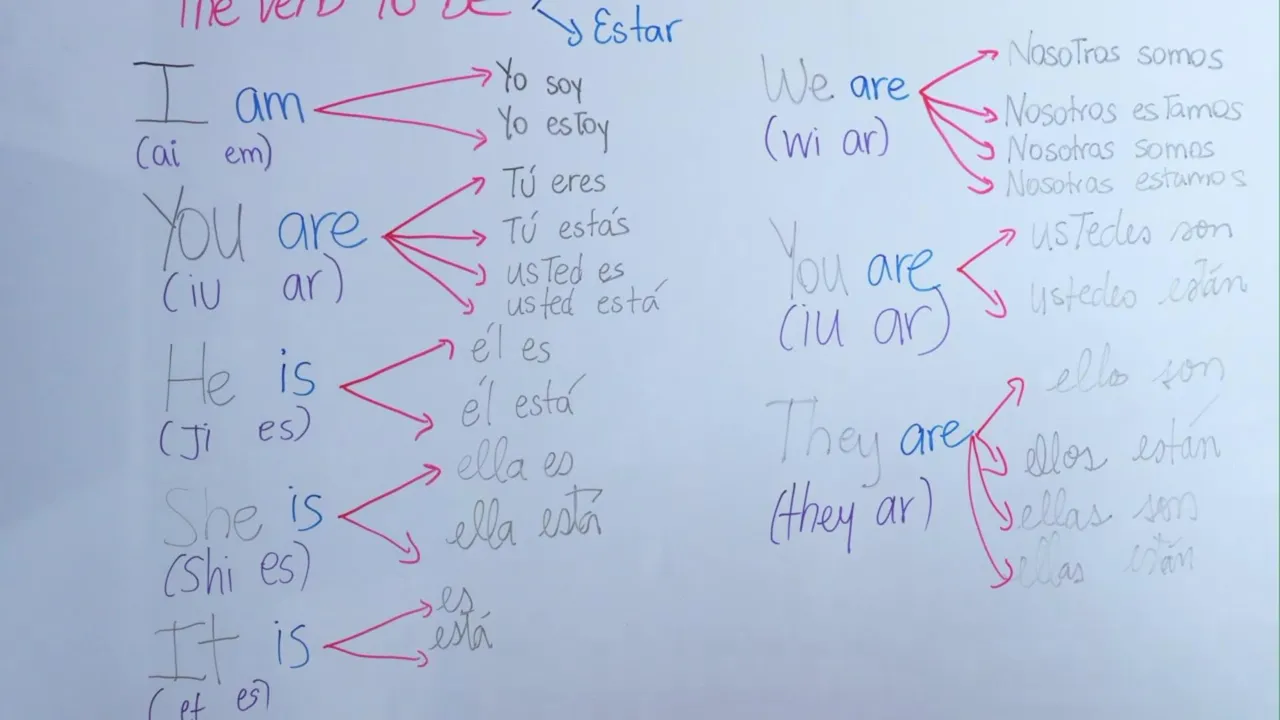 The verb To BE
Estar
I am
(ai em)
Yo soy
Yo estoy
You are
(iu ar)
Tú eres
Tú estás
usted es
usted está
He is
(Ji es)
él es
él está
She is
(Shi es)
ella es
ella está
It is
(et es)
es
está
We are
(wi ar)
Nosotros somos
Nosotros estamos
Nosotras somos
Nosotras estamos
You are
(iu ar)
ustedes son
ustedes están
They are
(they ar)
ellos son
ellos están
ellas son
ellas están